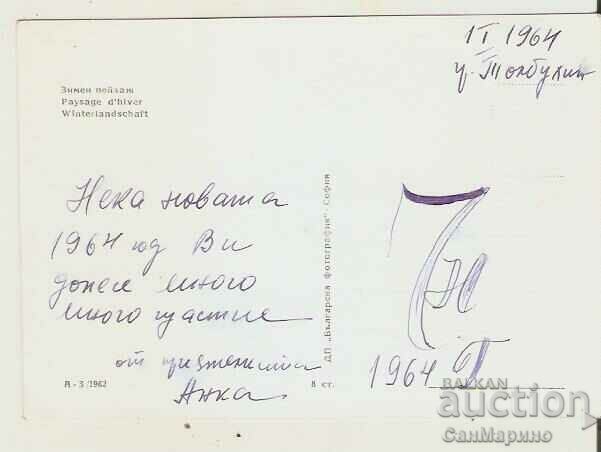 1 I 1964
г. Толбухин
Зимен пейзаж
Paysage d'hiver
Winterlandschaft
Нека новата
1964 год Ви
донесе много
много щастие
от
Анка
А - 3 /1962
8 ст.
ДП „Българска фотография" - София
1964
BALKAN
auction
СанМарино